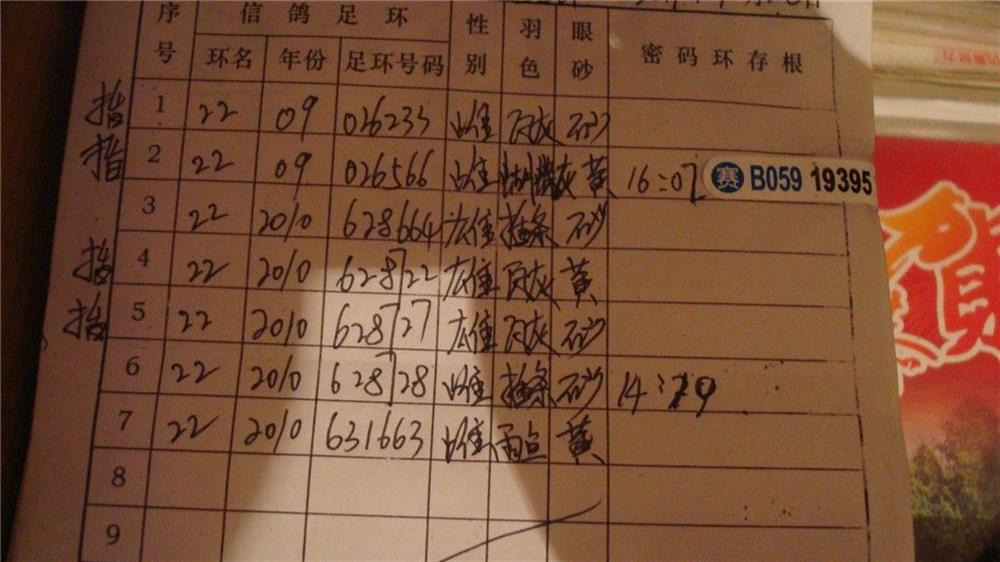 序号 信鸽足环 性别 羽色 眼砂 密码环存根
环名 年份 足环号码
指 1 22 09 026233 雌 瓦灰 砂
指 2 22 09 026566 雌 灰 黄 16:07 赛 B059 19395
3 22 2010 628664 雄 插条 砂
指 4 22 2010 628722 雄 瓦灰 黄
指 5 22 2010 628727 雄 瓦灰 砂
6 22 2010 628728 雌 插条 砂 14:19
7 22 2010 631663 雌 雨点 黄
8
9